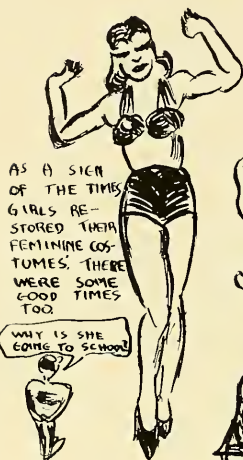 AS A SIGN
OF THE TIMES,
GIRLS RE-
STORED THEIR
FEMININE COS-
TUMES. THERE
WERE SOME
GOOD TIMES
TOO.
WHY IS SHE
GOING TO SCHOOL?